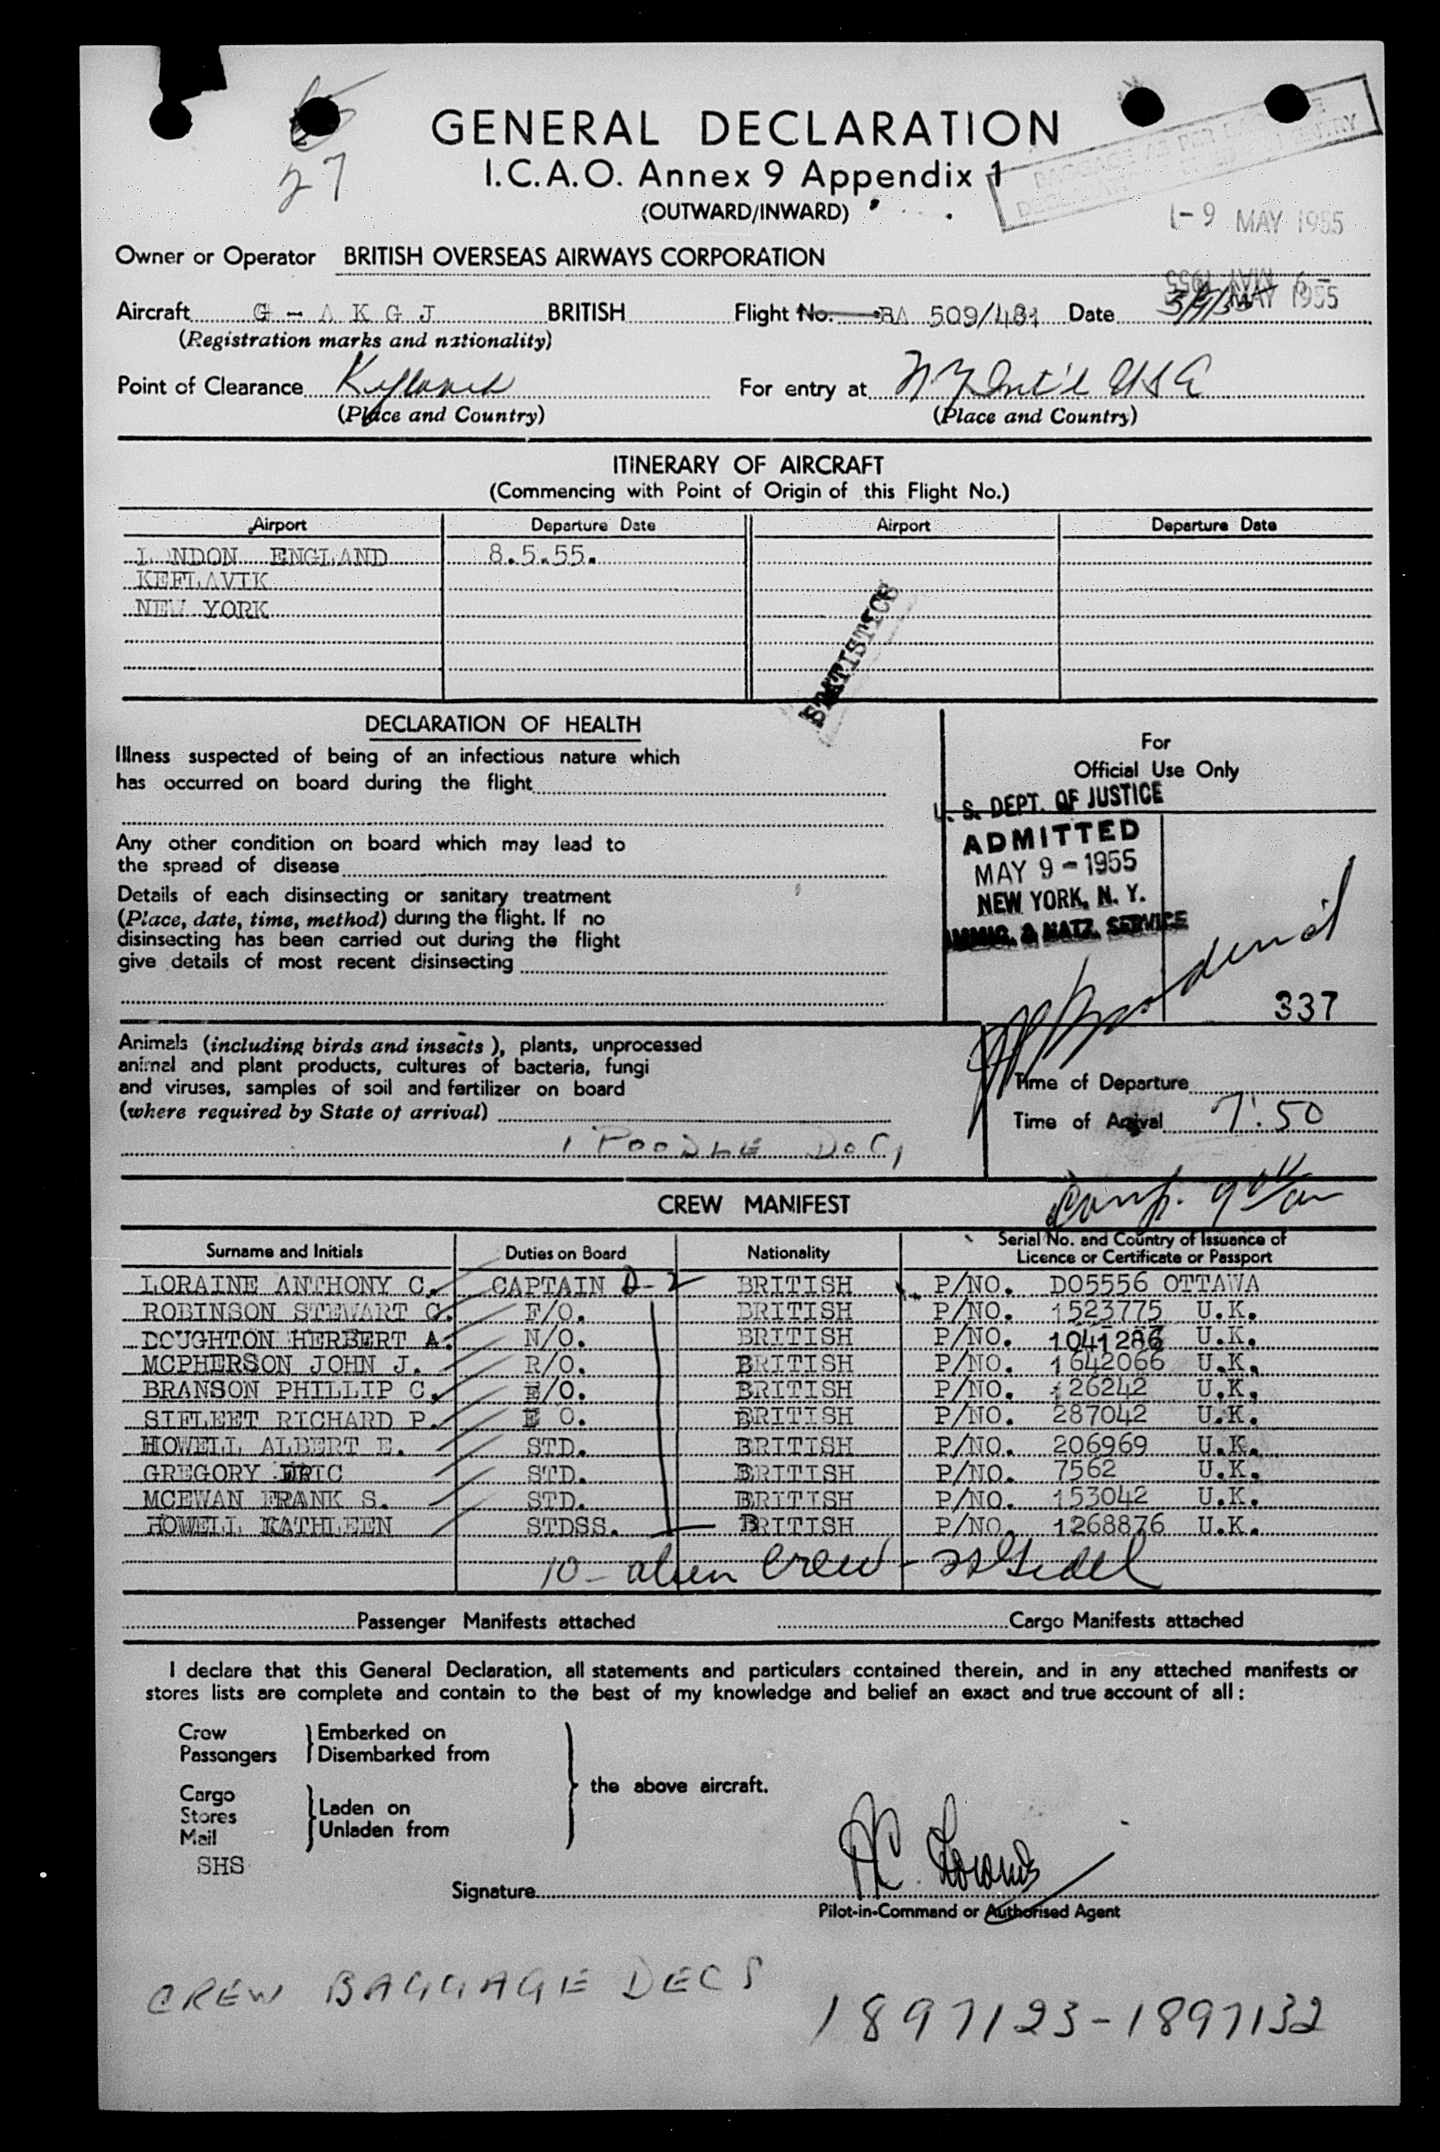 27
GENERAL DECLARATION
I.C.A.O. Annex 9 Appendix 1
(OUTWARD/INWARD)
BAGGAGE AS PER
-9 MAY 1955
Owner or Operator BRITISH OVERSEAS AIRWAYS CORPORATION
-9 MAY 1955
Aircraft G - A K G J BRITISH Flight No. BA 509/481 Date MAY 1955
(Registration marks and nationality)
Point of Clearance Keflavik For entry at N Y Int'l USA
(Place and Country) (Place and Country)
ITINERARY OF AIRCRAFT
(Commencing with Point of Origin of this Flight No.)
Airport Departure Date Airport Departure Date
LONDON ENGLAND 8.5.55.
KEFLAVIK
NEW YORK
STATISTICS
DECLARATION OF HEALTH
Illness suspected of being of an infectious nature which
has occurred on board during the flight
Any other condition on board which may lead to
the spread of disease
Details of each disinsecting or sanitary treatment
(Place, date, time, method) during the flight. If no
disinsecting has been carried out during the flight
give details of most recent disinsecting
For
Official Use Only
U. S. DEPT. OF JUSTICE
ADMITTED
MAY 9 - 1955
NEW YORK, N. Y.
IMMIG. & NATZ. SERVICE
337
Animals (including birds and insects), plants, unprocessed
animal and plant products, cultures of bacteria, fungi
and viruses, samples of soil and fertilizer on board
(where required by State of arrival)
1 POODLE DOG
Time of Departure
Time of Arrival 7:50
Comp. 9 00 am
CREW MANIFEST
Surname and Initials Duties on Board Nationality Serial No. and Country of Issuance of Licence or Certificate or Passport
LORAINE ANTHONY C. CAPTAIN D-2 BRITISH P/NO. DO5556 OTTAWA
ROBINSON STEWART C. F/O. BRITISH P/NO. 1523775 U.K.
DOUGHTON HERBERT A. N/O. BRITISH P/NO. 1041286 U.K.
MCPHERSON JOHN J. R/O. BRITISH P/NO. 1642066 U.K.
BRANSON PHILLIP C. E/O. BRITISH P/NO. 126242 U.K.
SIFLEET RICHARD P. E O. BRITISH P/NO. 287042 U.K.
HOWELL ALBERT E. STD. BRITISH P/NO. 206969 U.K.
GREGORY ERIC STD. BRITISH P/NO. 7562 U.K.
MCEWAN FRANK S. STD. BRITISH P/NO. 153042 U.K.
HOWELL KATHLEEN STDSS. BRITISH P/NO. 1268876 U.K.
10 - alien Crew -
Passenger Manifests attached Cargo Manifests attached
I declare that this General Declaration, all statements and particulars contained therein, and in any attached manifests or
stores lists are complete and contain to the best of my knowledge and belief an exact and true account of all :
Crew Embarked on
Passengers Disembarked from
the above aircraft.
Cargo
Stores Laden on
Mail Unladen from
SHS
Signature AC Loraine
Pilot-in-Command or Authorised Agent
CREW BAGGAGE DECS
1897123-1897132